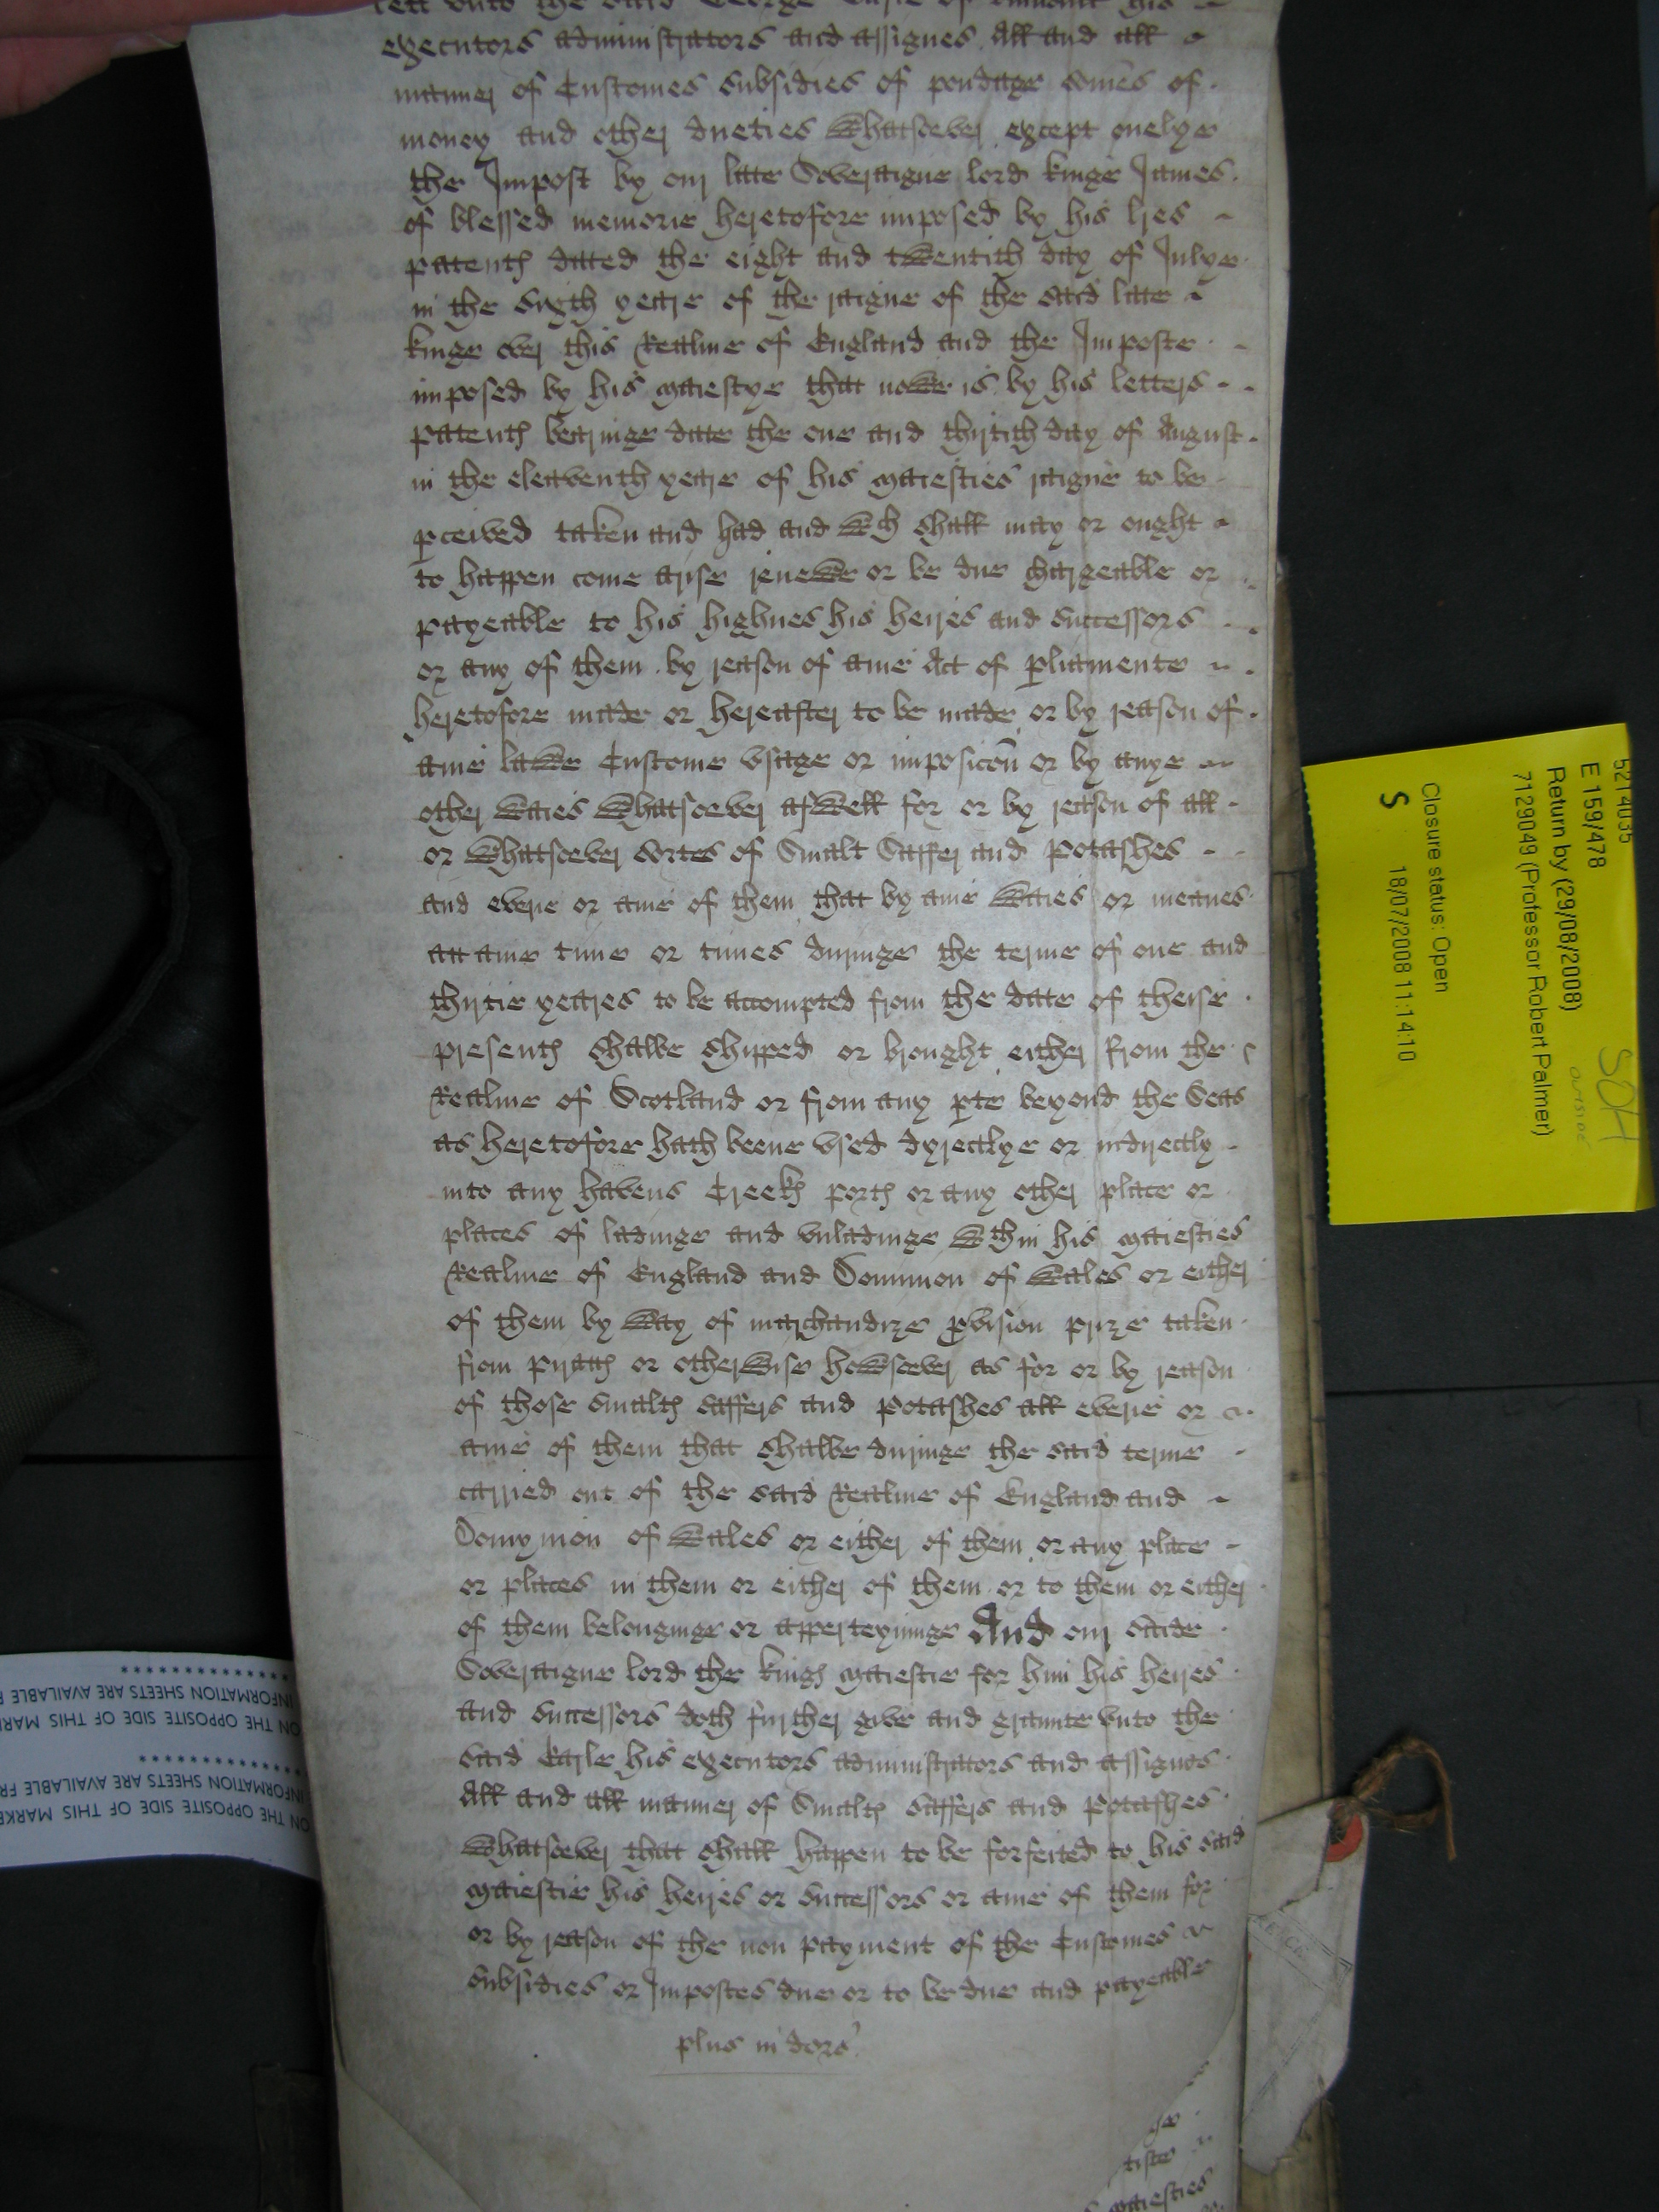 lett unto the said George Earle of his
executors administrators and assignes All and all
manner of Customes Subsidies of pondage somes of
money and other dueties whatsoever except onelye
the Impost by our late Soveraigne lord kinge James
of blessed memorie heretofore imposed by his lres
patents dated the eight and twentith day of Julye
in the Sixth yeare of the raigne of the said late
kinge over this Realme of England and the Imposte
imposed by his Maiestye that nowe is by his letters
patents bearinge date the one and thirtith day of August
in the eleaventh yeare of his Maiesties raigne to be
pceived taken and had and wch shall may or ought
to happen come arise renewe or be due chargeable or
payeable to his highnes his heires and Successors
or any of them by reason of anie Act of pliamente
heretofore made or hereafter to be made or by reason of
anie lawe Custome vsage or imposicon or by anye
other waies whatsoever aswell for or by reason of all
or whatsoever sortes of Smalt Saffer and Potashes
and everie or anie of them that by anie waies or meanes
att anie time or times duringe the terme of one and
thirtie yeares to be accompted from the date of theise
presents shalbe shipped or brought either from the
Realme of Scotland or from any pte beyond the Seas
as heretofore hath beene vsed dyrectlye or indirectly
into any havens Creeks ports or any other place or
places of ladinge and vnladinge wthin his Maiesties
Realme of England and Dominion of Wales or either
of them by way of marchandize pvision prize taken
from pirats or otherwise howsoever as for or by reason
of those Smalts saffers and potashes all everie or
anie of them that shalbe duringe the said terme
carried out of the said Realme of England and
Domynion of Wales or either of them or any place
or places in them or either of them or to them or either
of them belonginge or apperteyninge And our saide
Soveraigne lord the kings Maiestie for him his heires
and Successors doth further give and graunte vnto the
said Earle his executors administrators and assignes
All and all manner of Smalts saffers and potashes
whatsoever that shall happen to be forfeited to his said
Maiestie his heires or Successors or anie of them for
or by reason of the non payment of the Customes
Subsidies or Impostes due or to be due and payeable
plus in dors'
Maiesties
5214035
E 159/478
Return by (29/08/2008)
7129049 (Professor Robert Palmer)
Closure status: Open
S 18/07/2008 11:14:10
INFORMATION SHEETS ARE AVAILABLE
ON THE OPPOSITE SIDE OF THIS MARK
INFORMATION SHEETS ARE AVAILABLE FR
ON THE OPPOSITE SIDE OF THIS MARKE